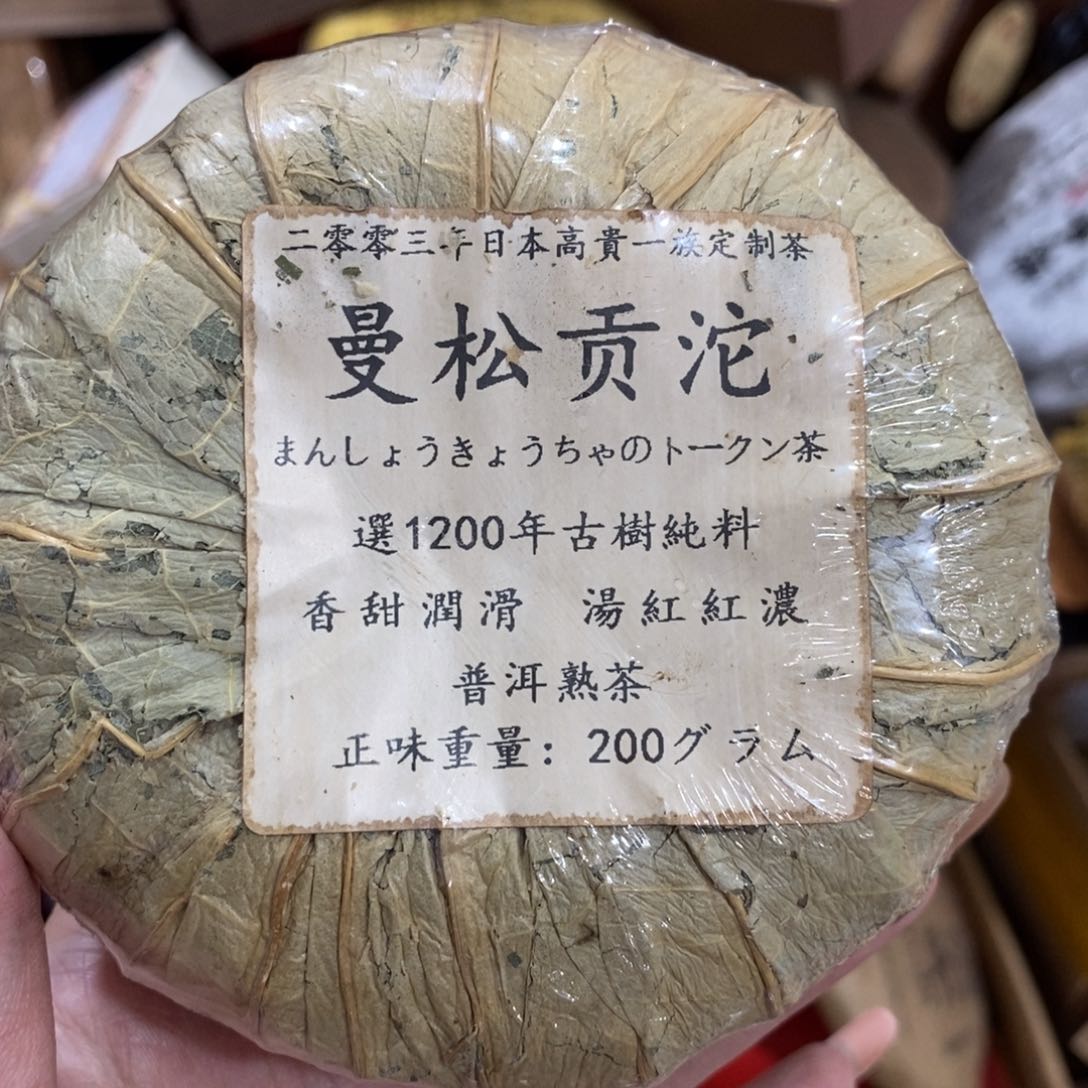 二零零三年日本高貴一族定制茶
曼松贡沱
まんしょうきょうちゃのトークン茶
選1200年古樹純料
香甜潤滑　湯紅紅濃
普洱熟茶
正味重量：200グラム